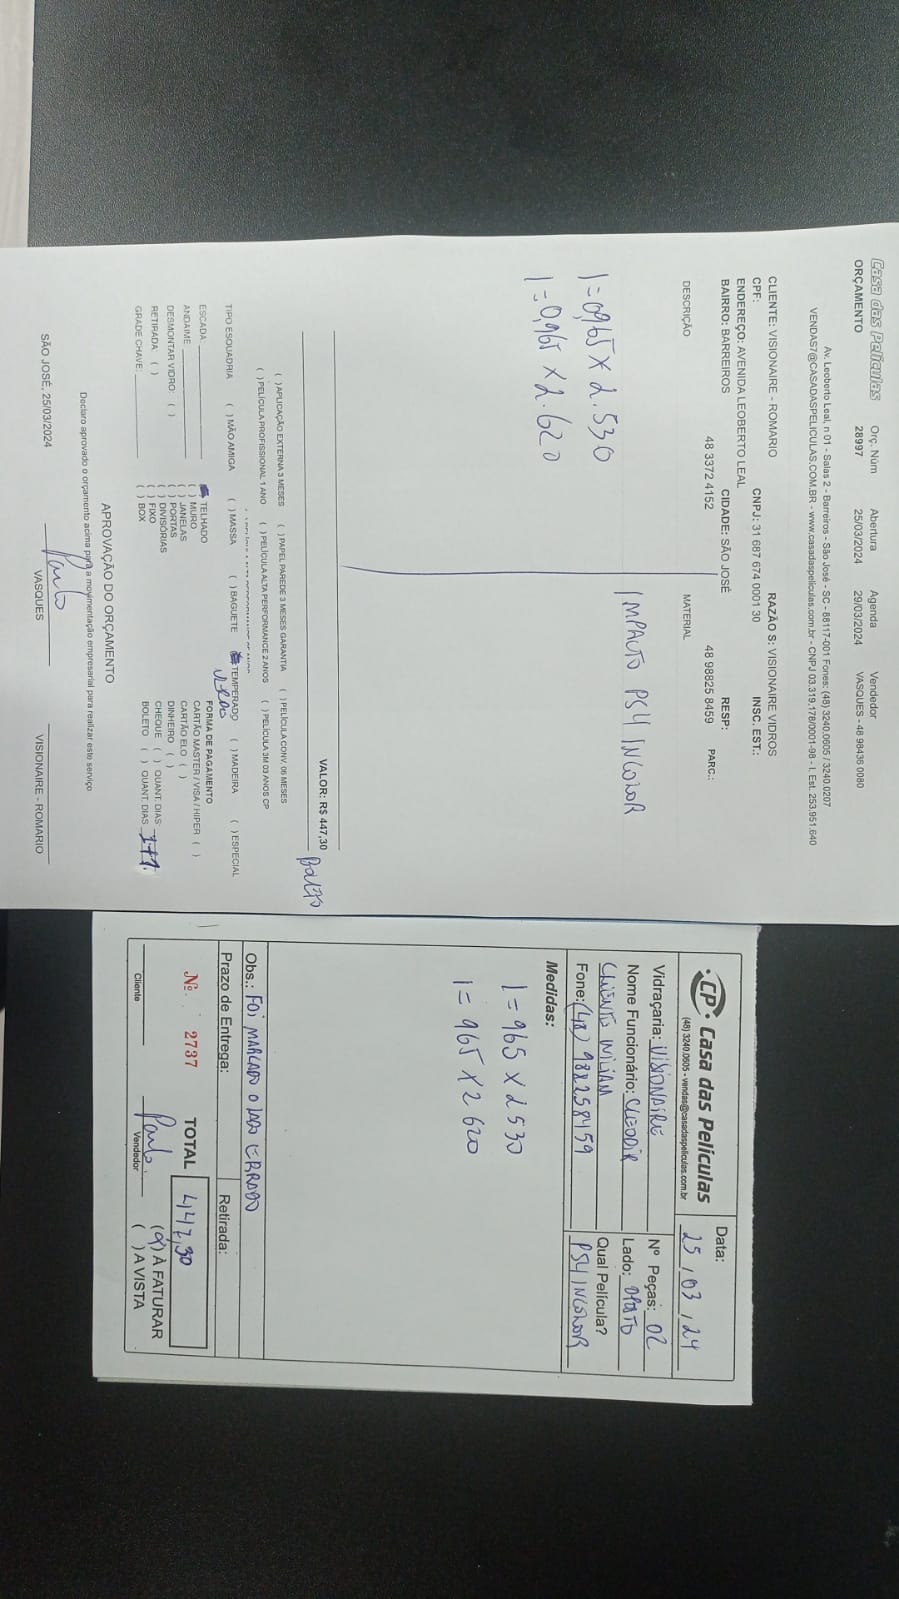 Casa das Películas
ORÇAMENTO
Orç. Núm Abertura Agenda Vendedor
28997 25/03/2024 29/03/2024 VASQUES - 48 98436 0080
Av. Leoberto Leal, n 01 - Salas 2 - Barreiros - São José - SC - 88117-001 Fones: (48) 3240.0605 / 3240.0207
VENDAS7@CASADASPELICULAS.COM.BR - www.casadaspeliculas.com.br - CNPJ 03.319.178/0001-98 - I. Est. 253.951.640
CLIENTE: VISIONAIRE - ROMARIO RAZÃO S: VISIONAIRE VIDROS
CPF: CNPJ: 31 687 674 0001 30 INSC. EST.:
ENDEREÇO: AVENIDA LEOBERTO LEAL
BAIRRO: BARREIROS CIDADE: SÃO JOSÉ RESP:
48 3372 4152 48 98825 8459 PARC.:
DESCRIÇÃO MATERIAL
IMPACTO PS4 INCOLOR
1 = 0,965 x 2.530
1 = 0,965 x 2.620
VALOR: R$ 447,30
BOLETO
( ) APLICAÇÃO EXTERNA 3 MESES ( ) PAPEL PAREDE 3 MESES GARANTIA ( ) PELÍCULA CONV. 06 MESES
( ) PELÍCULA PROFISSIONAL 1 ANO ( ) PELÍCULA ALTA PERFORMANCE 2 ANOS ( ) PELÍCULA 3M 03 ANOS CP
TIPO ESQUADRIA ( ) MÃO AMIGA ( ) MASSA ( ) BAGUETE TEMPERADO ( ) MADEIRA ( ) ESPECIAL
ESCADA: TELHADO FORMA DE PAGAMENTO
ANDAIME: ( ) MURO CARTÃO MASTER / VISA / HIPER ( )
( ) JANELAS CARTÃO ELO ( )
DESMONTAR VIDRO: ( ) ( ) PORTAS DINHEIRO ( )
RETIRADA: ( ) ( ) DIVISÓRIAS CHEQUE ( ) QUANT. DIAS:
( ) FIXO BOLETO ( ) QUANT. DIAS
GRADE CHAVE: ( ) BOX
APROVAÇÃO DO ORÇAMENTO
Declaro aprovado o orçamento acima para a movimentação empresarial para realizar este serviço
SÃO JOSÉ, 25/03/2024
VASQUES
VISIONAIRE - ROMARIO
CP Casa das Películas
(48) 3240.0605 - vendas@casadaspeliculas.com.br
Data:
25 / 03 / 24
Vidraçaria: VISIONAIRE
Nº Peças: 02
Nome Funcionário: CLEODIR
Lado: OPOSTO
CLIENTE WILIAM
Qual Película?
Fone: (48) 988258459
PS4 INCOLOR
Medidas:
1 = 965 x 2530
1 = 965 x 2620
Obs.: FOI MARCADO O LADO ERRADO
Prazo de Entrega: Retirada:
Nº 2737 TOTAL 447,30
(x) À FATURAR
( ) A VISTA
Cliente
Vendedor